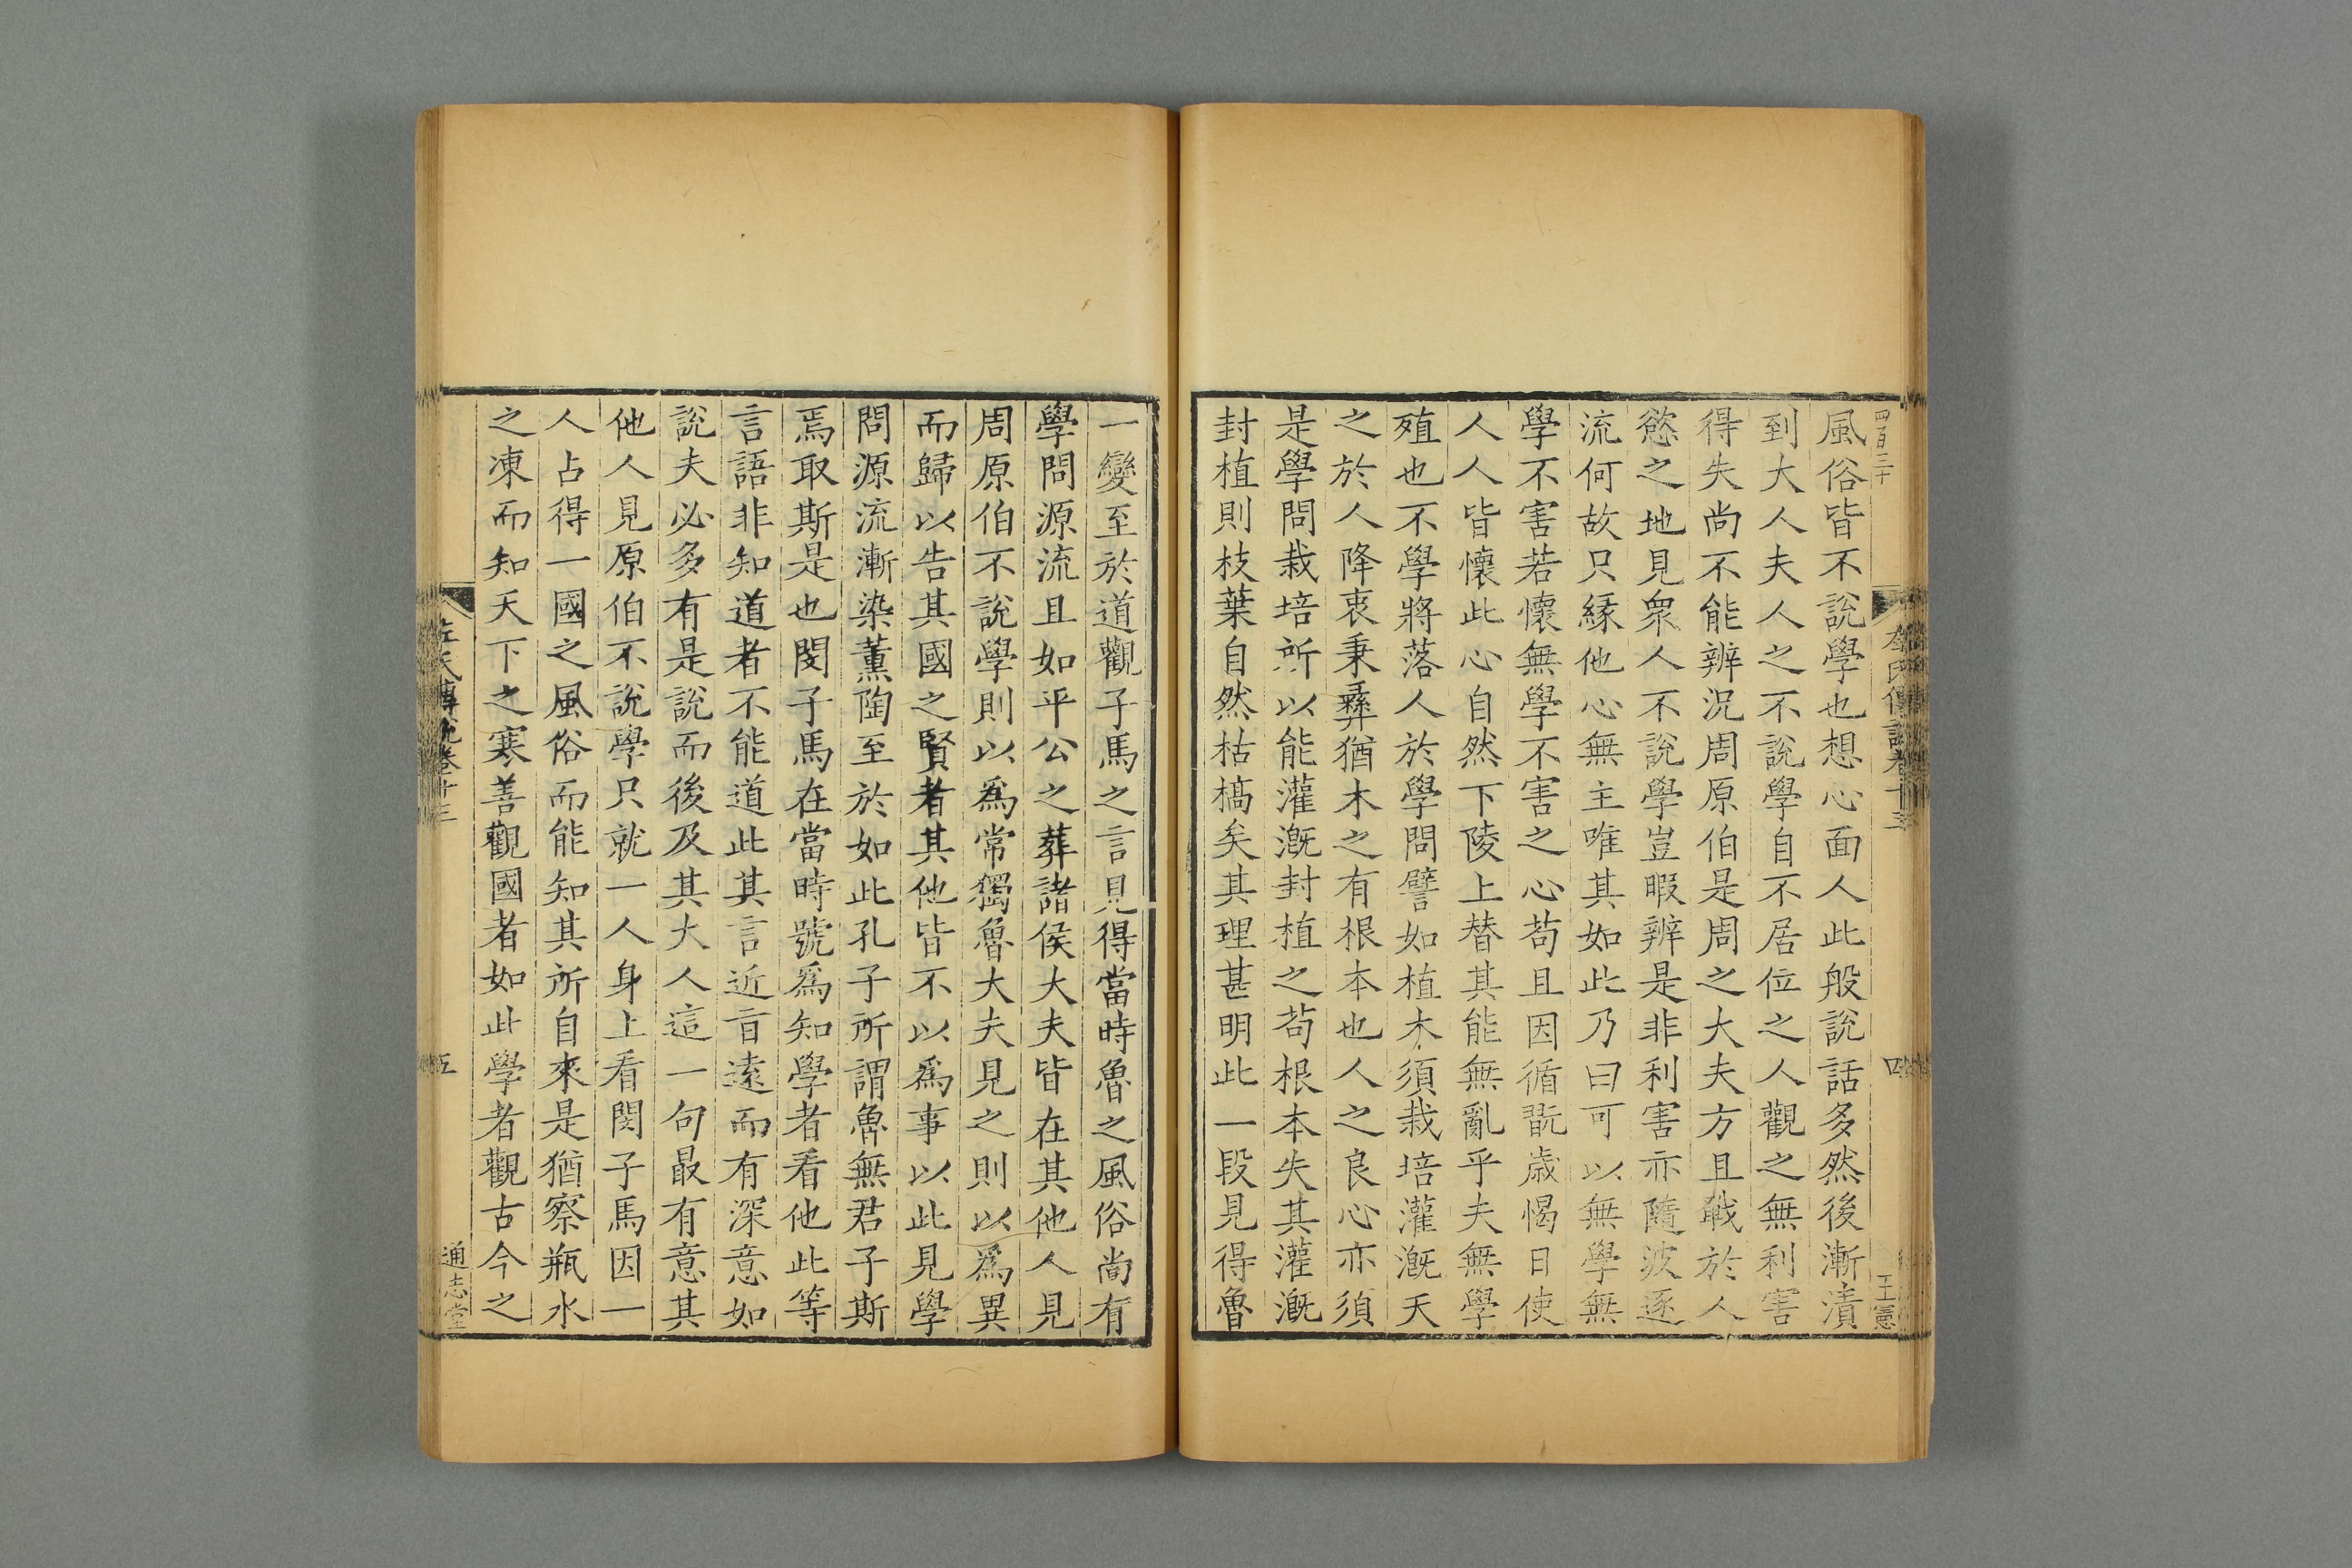 四百三十
風俗皆不說學也想心面人此般說話多然後漸漬
到大人夫人之不說學自不居位之人觀之無利害
得失尚不能辨況周原伯是周之大夫方且戰於人
慾之地見衆人不說學豈暇辨是非利害亦隨波逐
流何故只緣他心無主唯其如此乃曰可以無學無
學不害若懷無學不害之心苟且因循翫歲愒日使
人人皆懷此心自然下陵上替其能無亂乎夫無學
殖也不學將落人於學問譬如植木須栽培灌漑天
之於人降衷秉彝猶木之有根本也人之良心亦須
是學問栽培所以能灌漑封植之苟根本失其灌漑
封植則枝葉自然枯槁矣其理甚明此一段見得魯
左氏傳說卷十三
四
王憲
一變至於道觀子馬之言見得當時魯之風俗尚有
學問源流且如平公之葬諸侯大夫皆在其他人見
周原伯不說學則以爲常獨魯大夫見之則以爲異
而歸以告其國之賢者其他皆不以爲事以此見學
問源流漸染薰陶至於如此孔子所謂魯無君子斯
焉取斯是也閔子馬在當時號爲知學者看他此等
言語非知道者不能道此其言近㫖遠而有深意如
說夫必多有是說而後及其大人這一句最有意其
他人見原伯不說學只就一人身上看閔子馬因一
人占得一國之風俗而能知其所自來是猶察瓶水
之凍而知天下之寒善觀國者如此學者觀古今之
左氏傳說卷十三
五
通志堂